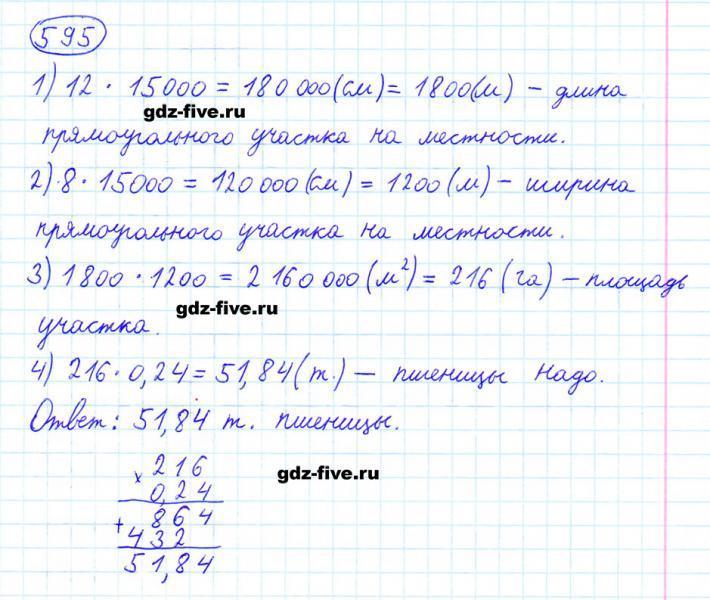 595
1) 12 · 15000 = 180 000 (см) = 1800 (м) – длина
gdz-five.ru
прямоугольного участка на местности.
2) 8 · 15000 = 120 000 (см) = 1200 (м) – ширина
прямоугольного участка на местности.
3) 1800 · 1200 = 2 160 000 (м²) = 216 (га) – площадь
gdz-five.ru
участка.
4) 216 · 0,24 = 51,84 (т.) – пшеницы надо.
Ответ: 51,84 т. пшеницы.
× 216
gdz-five.ru
0,24
+ 864
432
51,84